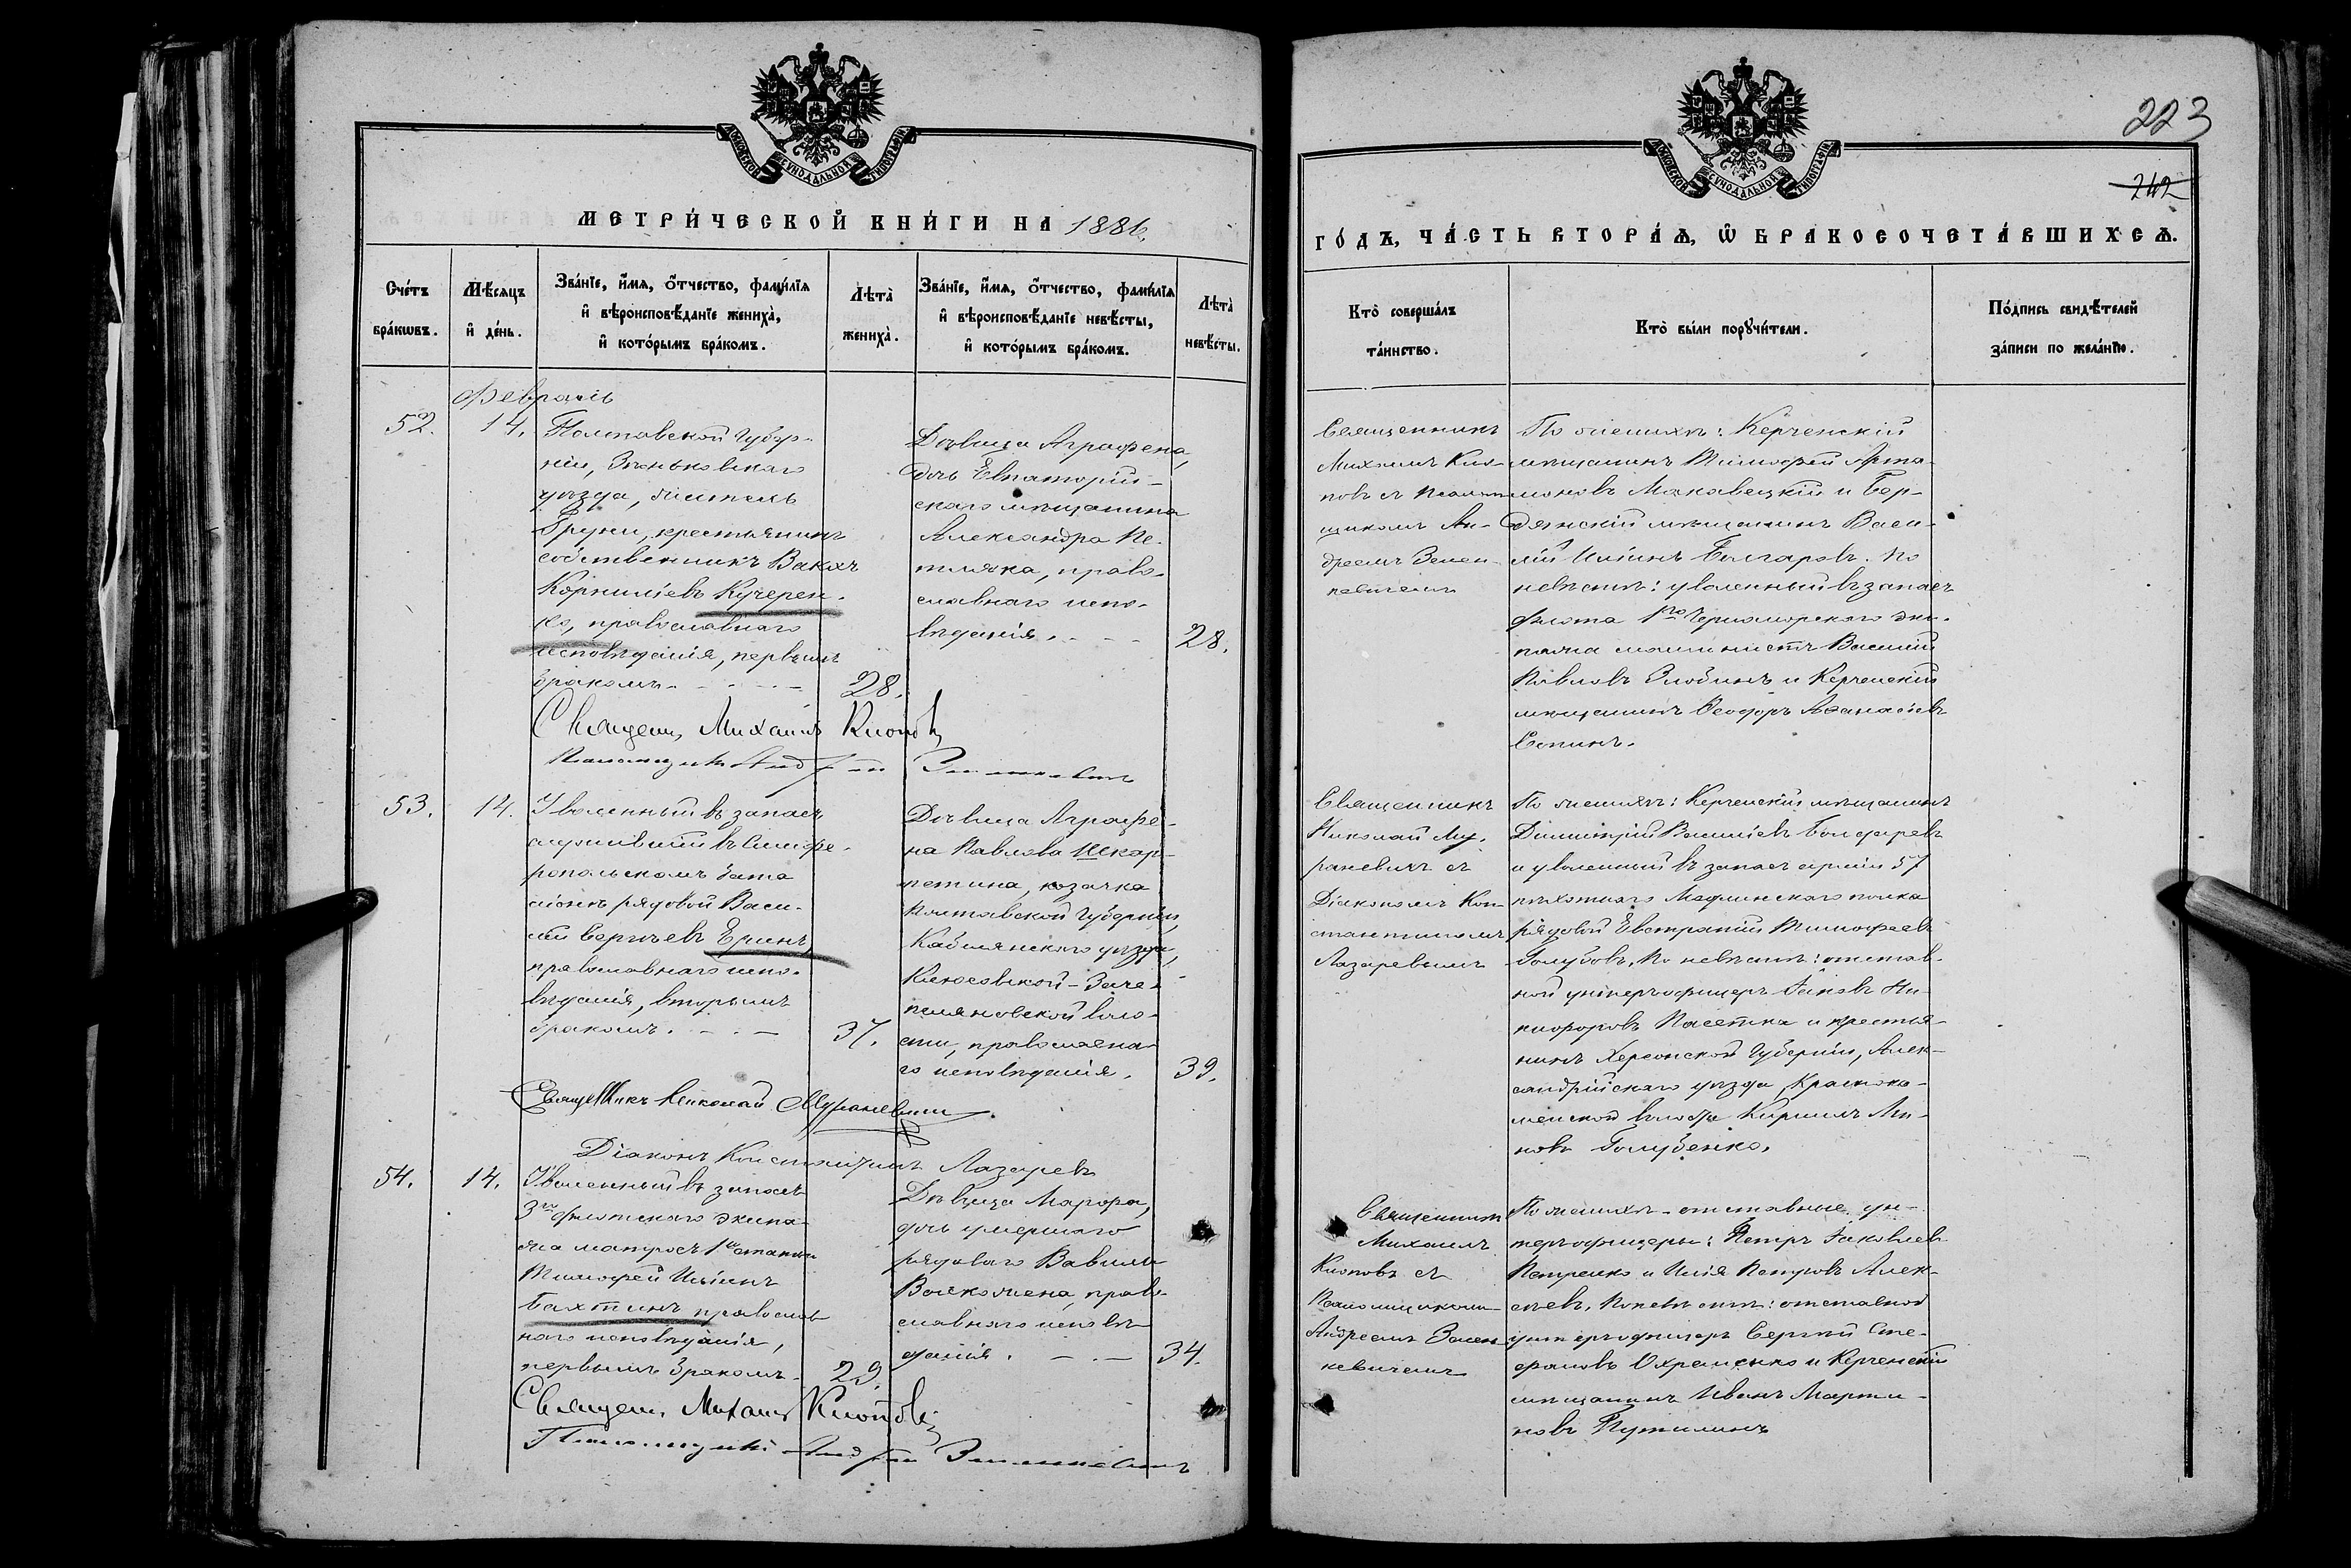 МОСКОВСКОЙ СѴНОДАЛЬНОЙ ТИПОГРАФІИ
МЕТРИ́ЧЕСКОЙ КНИ́ГИ НА 1886.
Сче́тъ бра́кѡвъ.
Мѣ́сяцъ и҆ де́нь.
Зва́нїе, и҆́мя, ѻ҆́тчество, фами́лїя
и҆ вѣроисповѣ́данїе жениха̀,
и҆ кото́рымъ бра́комъ.
Лѣта̀ жениха̀.
Зва́нїе, и҆́мя, ѻ҆́тчество, фами́лїя
и҆ вѣроисповѣ́данїе невѣ́сты,
и҆ кото́рымъ бра́комъ.
Лѣта̀ невѣ́сты.
Февраль
52.
14.
Полтавской Губер-
ніи, Зѣньковскаго
уѣзда, жителъ
Груни, крестьянинъ
собственникъ Вакхъ
Корниліевъ Кучерен-
ко, православнаго
исповѣданія, первымъ
бракомъ.
28.
Дѣвица Аграфена,
дочь Евпаторій-
скаго мѣщанина
Александра Пе-
тляка, право-
славнаго испо-
вѣданія.
28.
Священ. Михаилъ Кіоповъ
Псаломщикъ Андрей
53.
14.
Уволенный въ запасъ
служившій въ Симфе-
ропольскомъ бата
ліонѣ рядовой Васи-
лій Сергѣевъ Еринъ,
православнаго испо-
вѣданія, вторымъ
бракомъ.
37.
Дѣвица Аграфе-
на Павлова Шкар-
петина, козачка
Полтавской Губерніи,
Кобелянскаго уѣзда,
пиляновской воло-
сти, православна-
го исповѣданія.
39.
Священникъ Николай Мураневичъ
Діаконъ Константинъ Лазаревъ
54.
14.
Уволенный въ запасъ
3го флотскаго экипа-
жа матросъ 1й статьи
Тимофей Ильинъ
Бахтинъ православ-
наго исповѣданія,
первымъ бракомъ
29.
Дѣвица Марфа,
дочь умершаго
рядоваго Вавилы
право-
славнаго исповѣ-
данія.
34.
Священ. Михаилъ Кіоповъ
Псаломщикъ Андрей
223
242
МОСКОВСКОЙ СѴНОДАЛЬНОЙ ТИПОГРАФІИ
ГО́ДЪ, ЧА́СТЬ ВТОРА́Я, Ѽ БРАКОСОЧЕТА́ВШИХСЯ.
Кто̀ соверша́лъ та́инство.
Кто̀ бы́ли порꙋчи́тели.
По́дпись свидѣ́телей за́писи по жела́нїю.
Священникъ
Михаилъ Кіо-
повъ съ Псалом-
щикомъ Ан-
дреемъ
По женихѣ: Керченскій
мѣщанинъ Тимофей Арта-
моновъ Маковецкій и Бер-
дянскій мѣщанинъ Васи-
лій Ильинъ Болгаровъ. По
невѣстѣ: уволенный въ запасъ
флота 1го Черноморскаго эки-
пажа машинистъ Василій
Павловъ Злобинъ и Керченскій
мѣщанинъ Ѳеодоръ Аѳанасіевъ
Священникъ
Николай Му-
раневичъ съ
Діакономъ Кон-
стантиномъ
Лазаревымъ
По женихѣ: Керченскій мѣщанинъ
Димитрій Василіевъ Бондаревъ
и уволенный въ запасъ арміи 57
пѣхотнаго Модлинскаго полка
рядовой Евстратій Тимофеевъ
Голубовъ. По невѣстѣ: отстав-
ной унтеръ-офицеръ Іаковъ Ни-
кифоровъ Пасетка и крестья-
нинъ Херсонской Губерніи, Алек-
сандрійскаго уѣзда, Краснока-
менской волости Кириллъ
Голубенко.
Священникъ
Михаилъ
Кіоповъ съ
Псаломщикомъ
Андреемъ
кевичемъ
По женихѣ - отставные ун-
теръ-офицеры: Петръ Іаковлевъ
Петренко и Илія Петровъ Алек-
сѣевъ. По невѣстѣ: отставной
унтеръ-офицеръ Сергѣй Сте-
фановъ Охременко и Керченскій
мѣщанинъ Иванъ Марти-
новъ Путилинъ